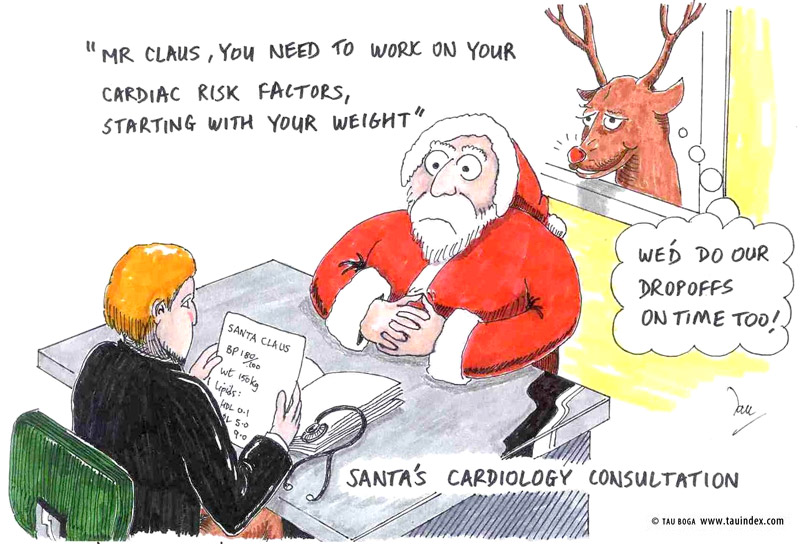 "MR CLAUS, YOU NEED TO WORK ON YOUR
CARDIAC RISK FACTORS,
STARTING WITH YOUR WEIGHT"
WE'D DO OUR
DROPOFFS
ON TIME TOO!
SANTA CLAUS
BP 180/100
Wt 150kg
Lipids:
HDL 0.1
DL 5.0
9.0
Tau
SANTA'S CARDIOLOGY CONSULTATION
© TAU BOGA www.tauindex.com